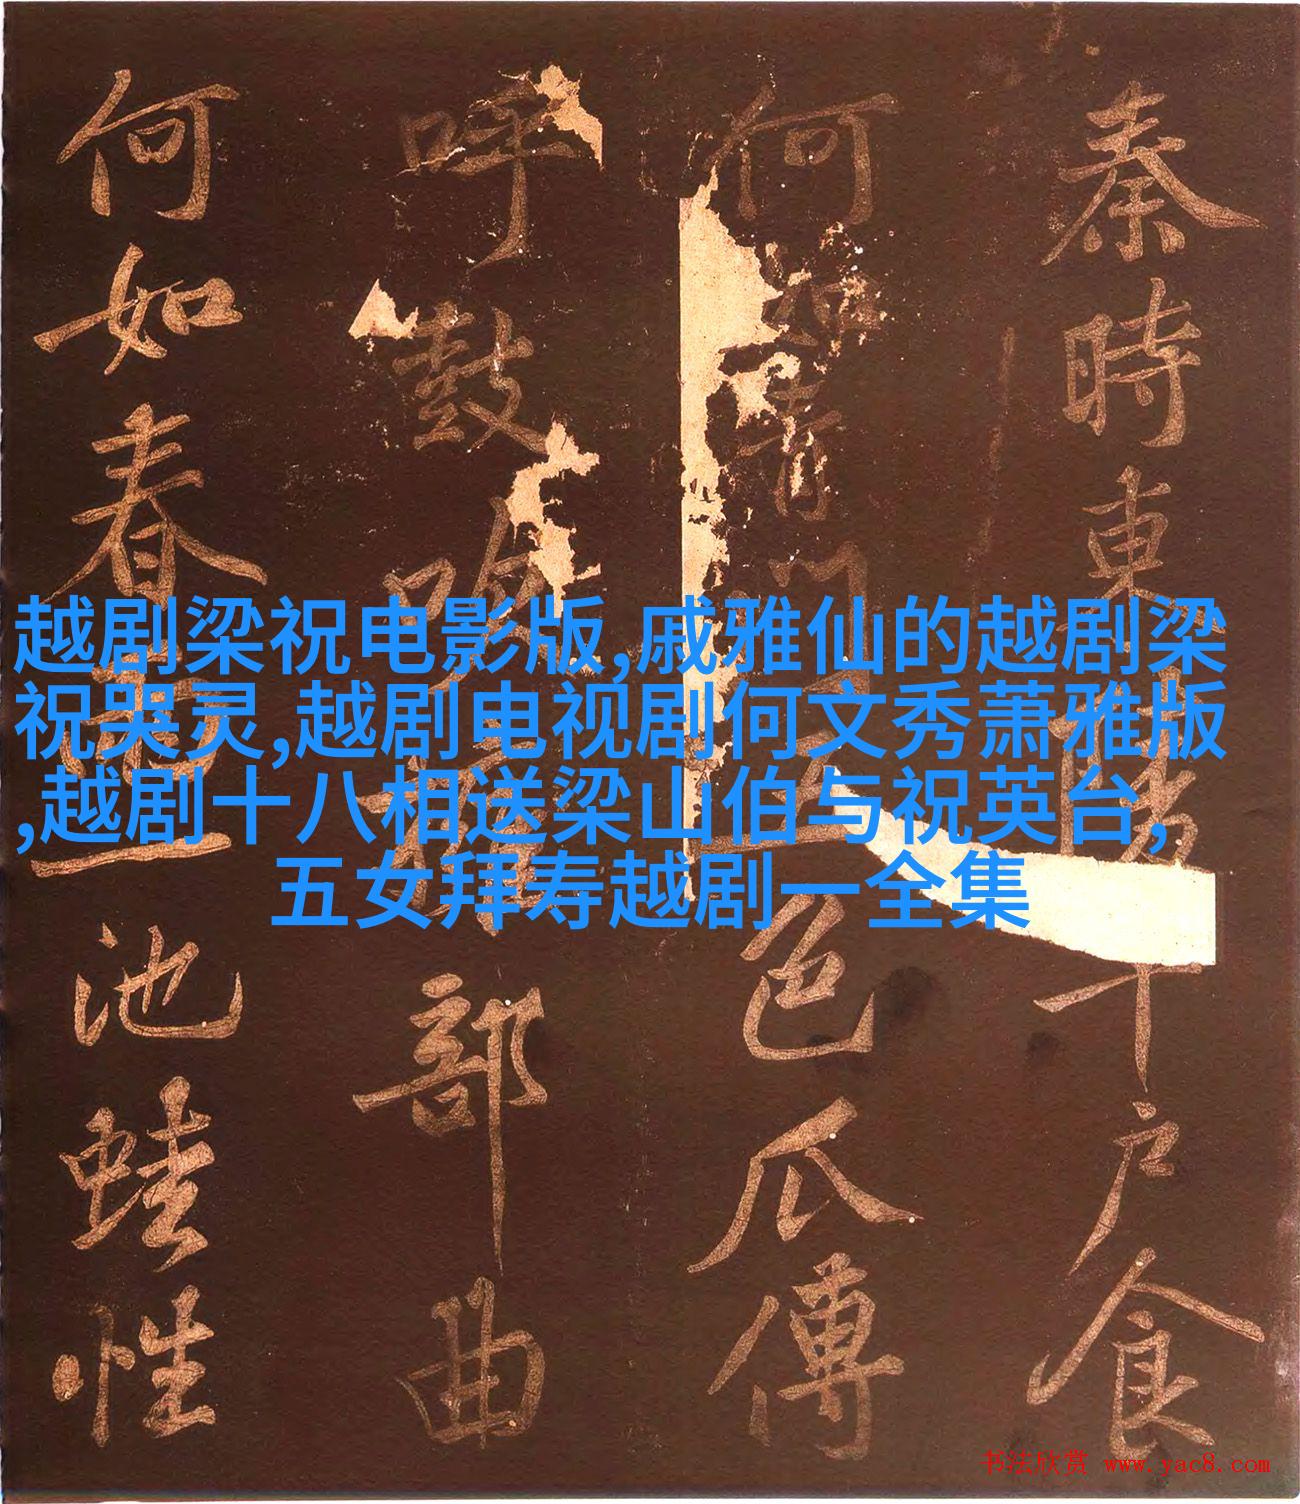 秦時東千戶食
何如青門五色瓜傳
呼鼓吹部曲
何如春一池蛙性
越剧梁祝电影版,戚雅仙的越剧梁
祝哭灵,越剧电视剧何文秀萧雅版
,越剧十八相送梁山伯与祝英台,
五女拜寿越剧一全集
书法欣赏 www.yac8.com